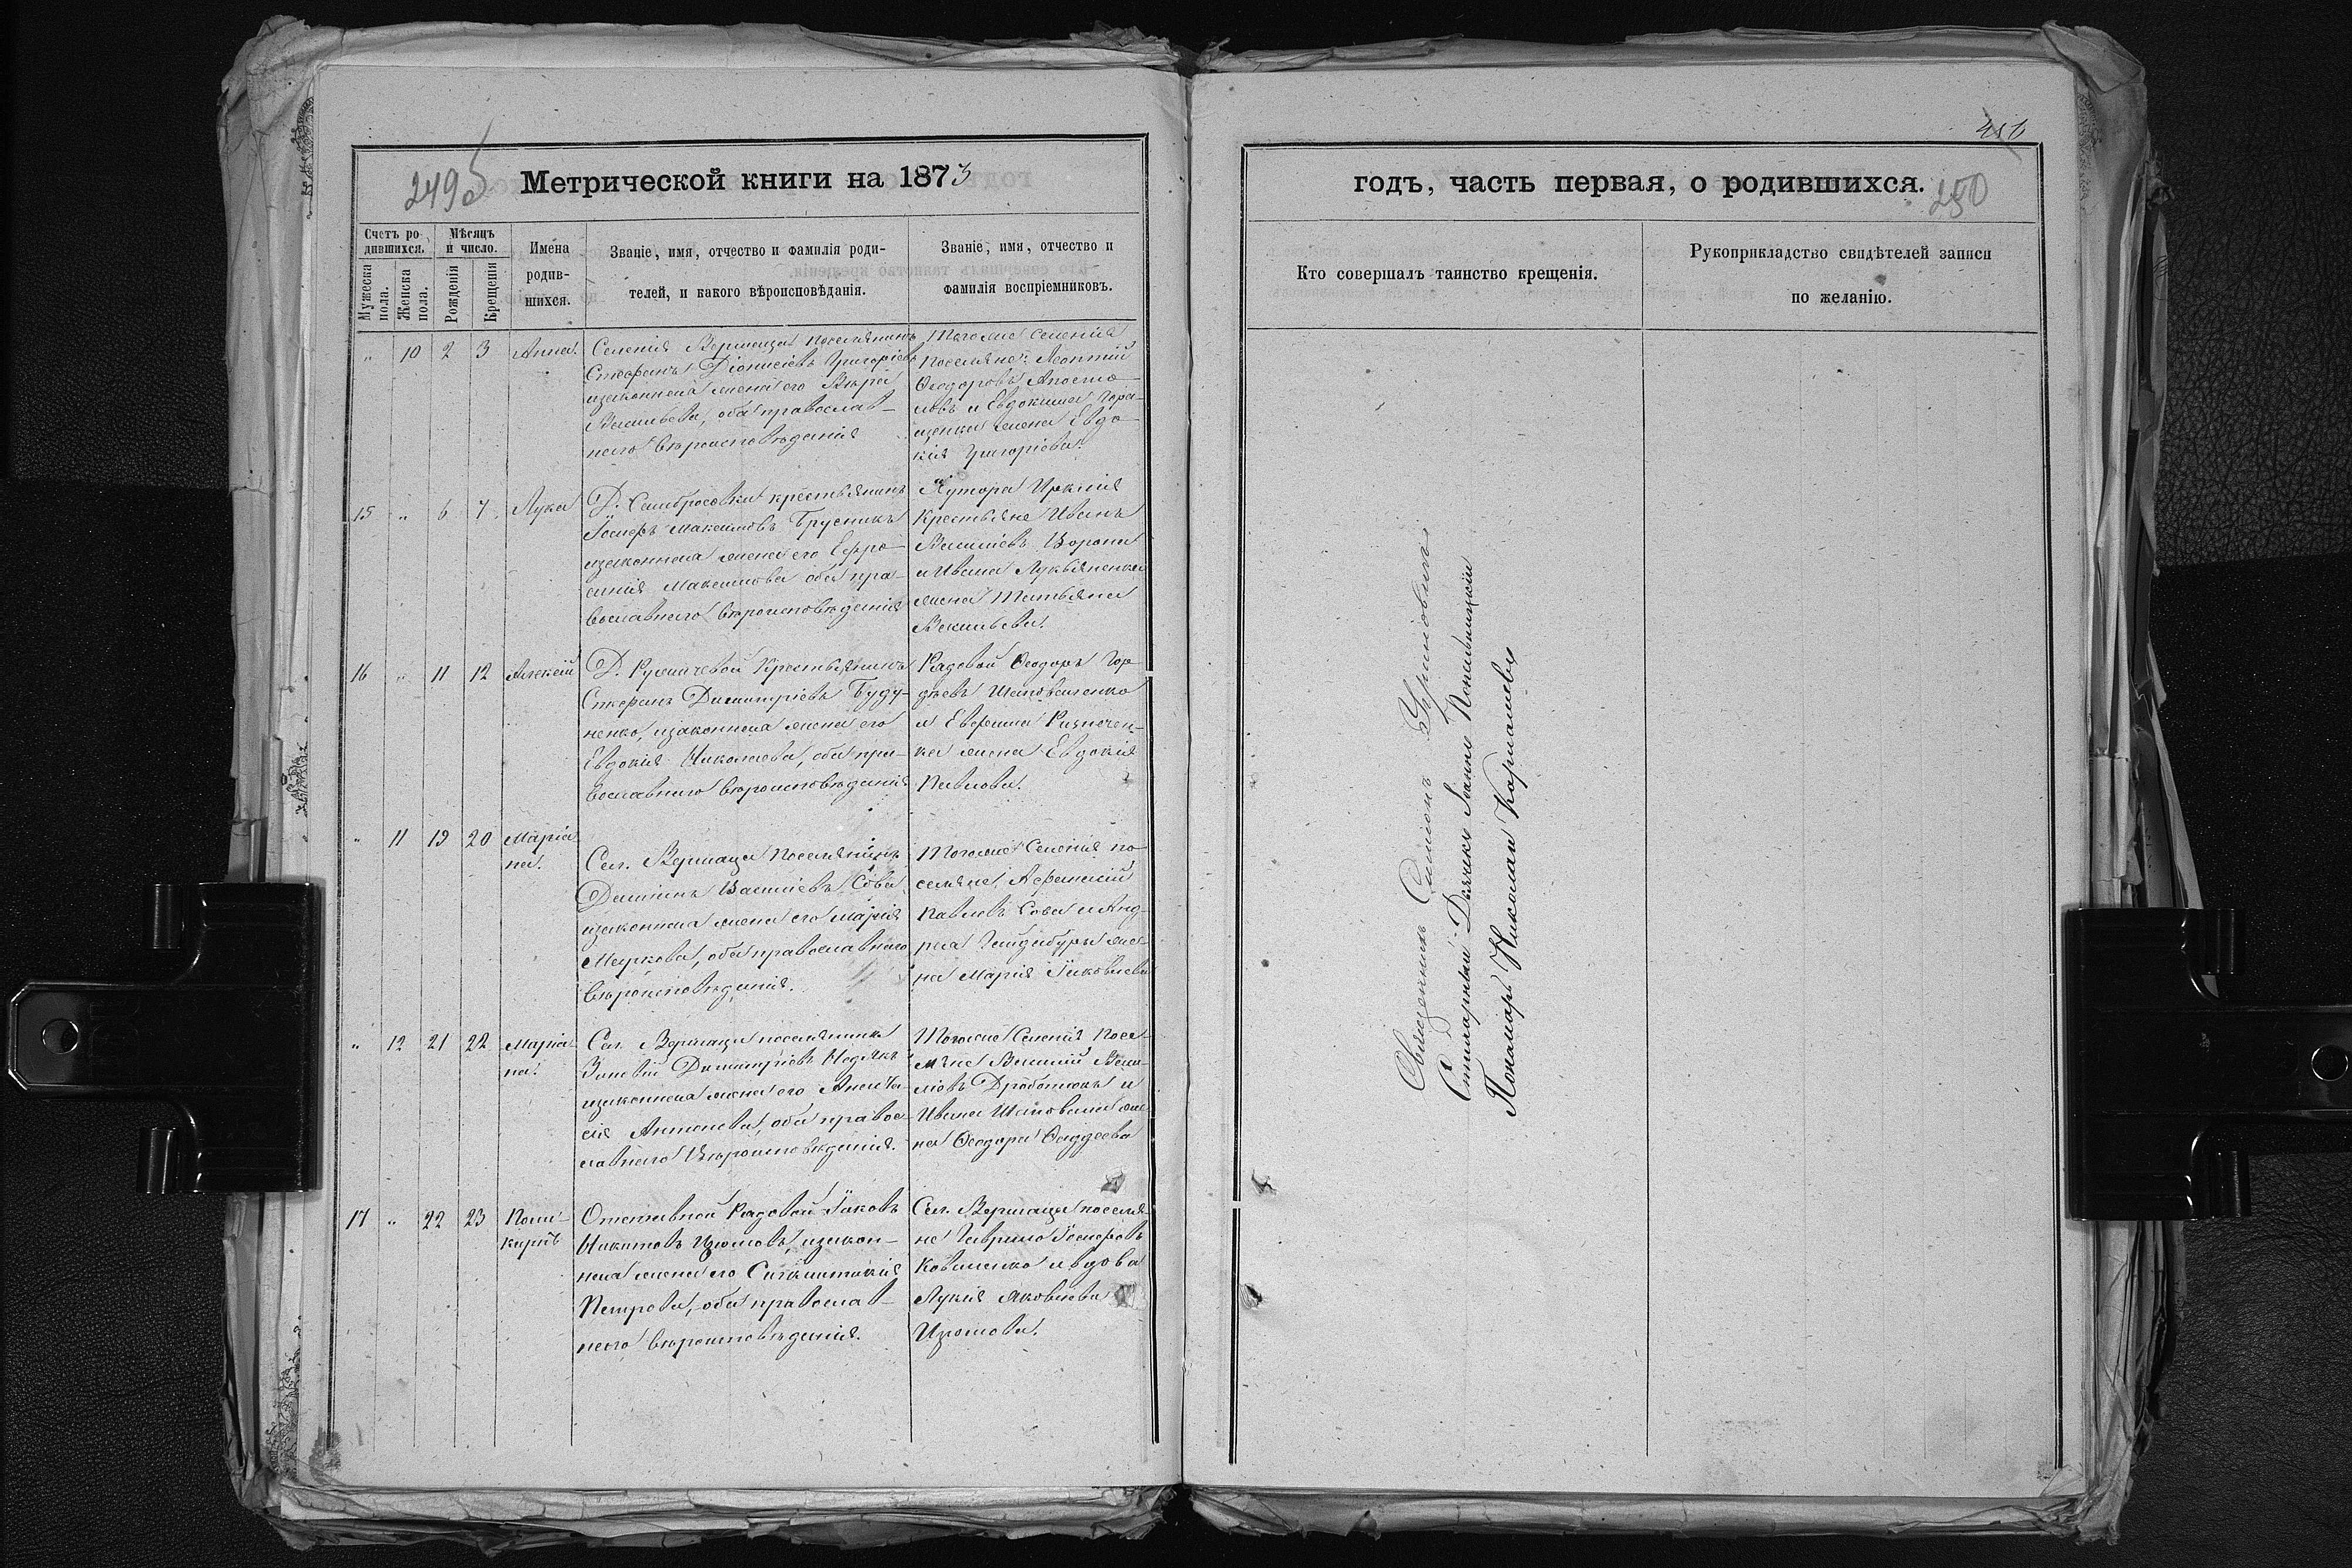 249б
Метрической книги на 1873
Счетъ ро-
дившихся.
Мужеска пола.
Женска пола.
Мѣсяцъ
и число.
Рожденія
Крещенія
Имена
родив-
шихся.
Званіе, имя, отчество и фамилія роди-
телей, и какого вѣроисповѣданія.
Званіе, имя, отчество и
фамилія воспріемниковъ.
" 10 2 3 Анна
Селенія Вершаца поселянинъ
Стефанъ Діонисіевъ Григоріевъ
изаконная жена его
Васильева, оба православ-
наго вѣроисповѣданія
Тогоже селенія
поселяне: Леонтій
Ѳеодоровъ Апосто-
ловъ и Евдокима
жена Евдо-
кія Григоріева.
15 " 6 7 Лука
Д. крестьянинъ
Іосифъ Максимовъ Брусникъ
изаконная жена его Ефро-
синія Максимова оба пра-
вославнаго вѣроисповѣданія
Хутора
крестьяне Иванъ
Василіевъ Ворона
и Ивана Лукьяненка
жена Татьяна
Васильева.
16 " 11 12 Алексій
Д. крестьянинъ
Стефанъ Димитріевъ Буду-
ненко, изаконная жена его
Евдокія Николаева, оба пра-
вославнаго вѣроисповѣданія
Рядовой Ѳеодоръ Гор-
дѣевъ Шаповаленко
и Евфима
жена Евдокія
Павлова.
" 11 19 20 Маріа-
на.
Сел. Вершаца поселянинъ
Даміанъ Василіевъ Сова
изаконная жена его Марія
Маркова, оба православнаго
вѣроисповѣданія.
Тогоже Селенія по-
селяне, Аѳанасій
Павловъ Сова и Анд-
рея Гайдабуры же-
на Марія Іаковлева
" 12 21 22 Маріа-
на.
Сел. Вершаца поселянинъ
Зиновій Димитріевъ
изаконная жена его Анаста-
сія Антонова, оба правос-
лавнаго Вѣроисповѣданія.
Тогоже Селенія Посе-
ляне Василій Васи-
ліевъ Дроботюкъ и
Ивана Шаповала же-
на Ѳеодора Ѳаддеева
17 " 22 23 Поли-
карпъ
Отставной Рядовой Іаковъ
Никитовъ Изюмовъ, изакон-
ная жена его Синклитикія
Петрова, оба православ-
наго вѣроисповѣданія.
Сел. Вершаца поселя-
не Гаврило Іосифовъ
Коваленко и вдова
Лукія Яковлева
Изюмова.
416
годъ, часть первая, о родившихся.
250
Кто совершалъ таинство крещенія.
Рукоприкладство свидѣтелей записи
по желанію.
Священникъ Симеонъ
Стихарный Дьячекъ Іоаннъ
Пономарь Николай